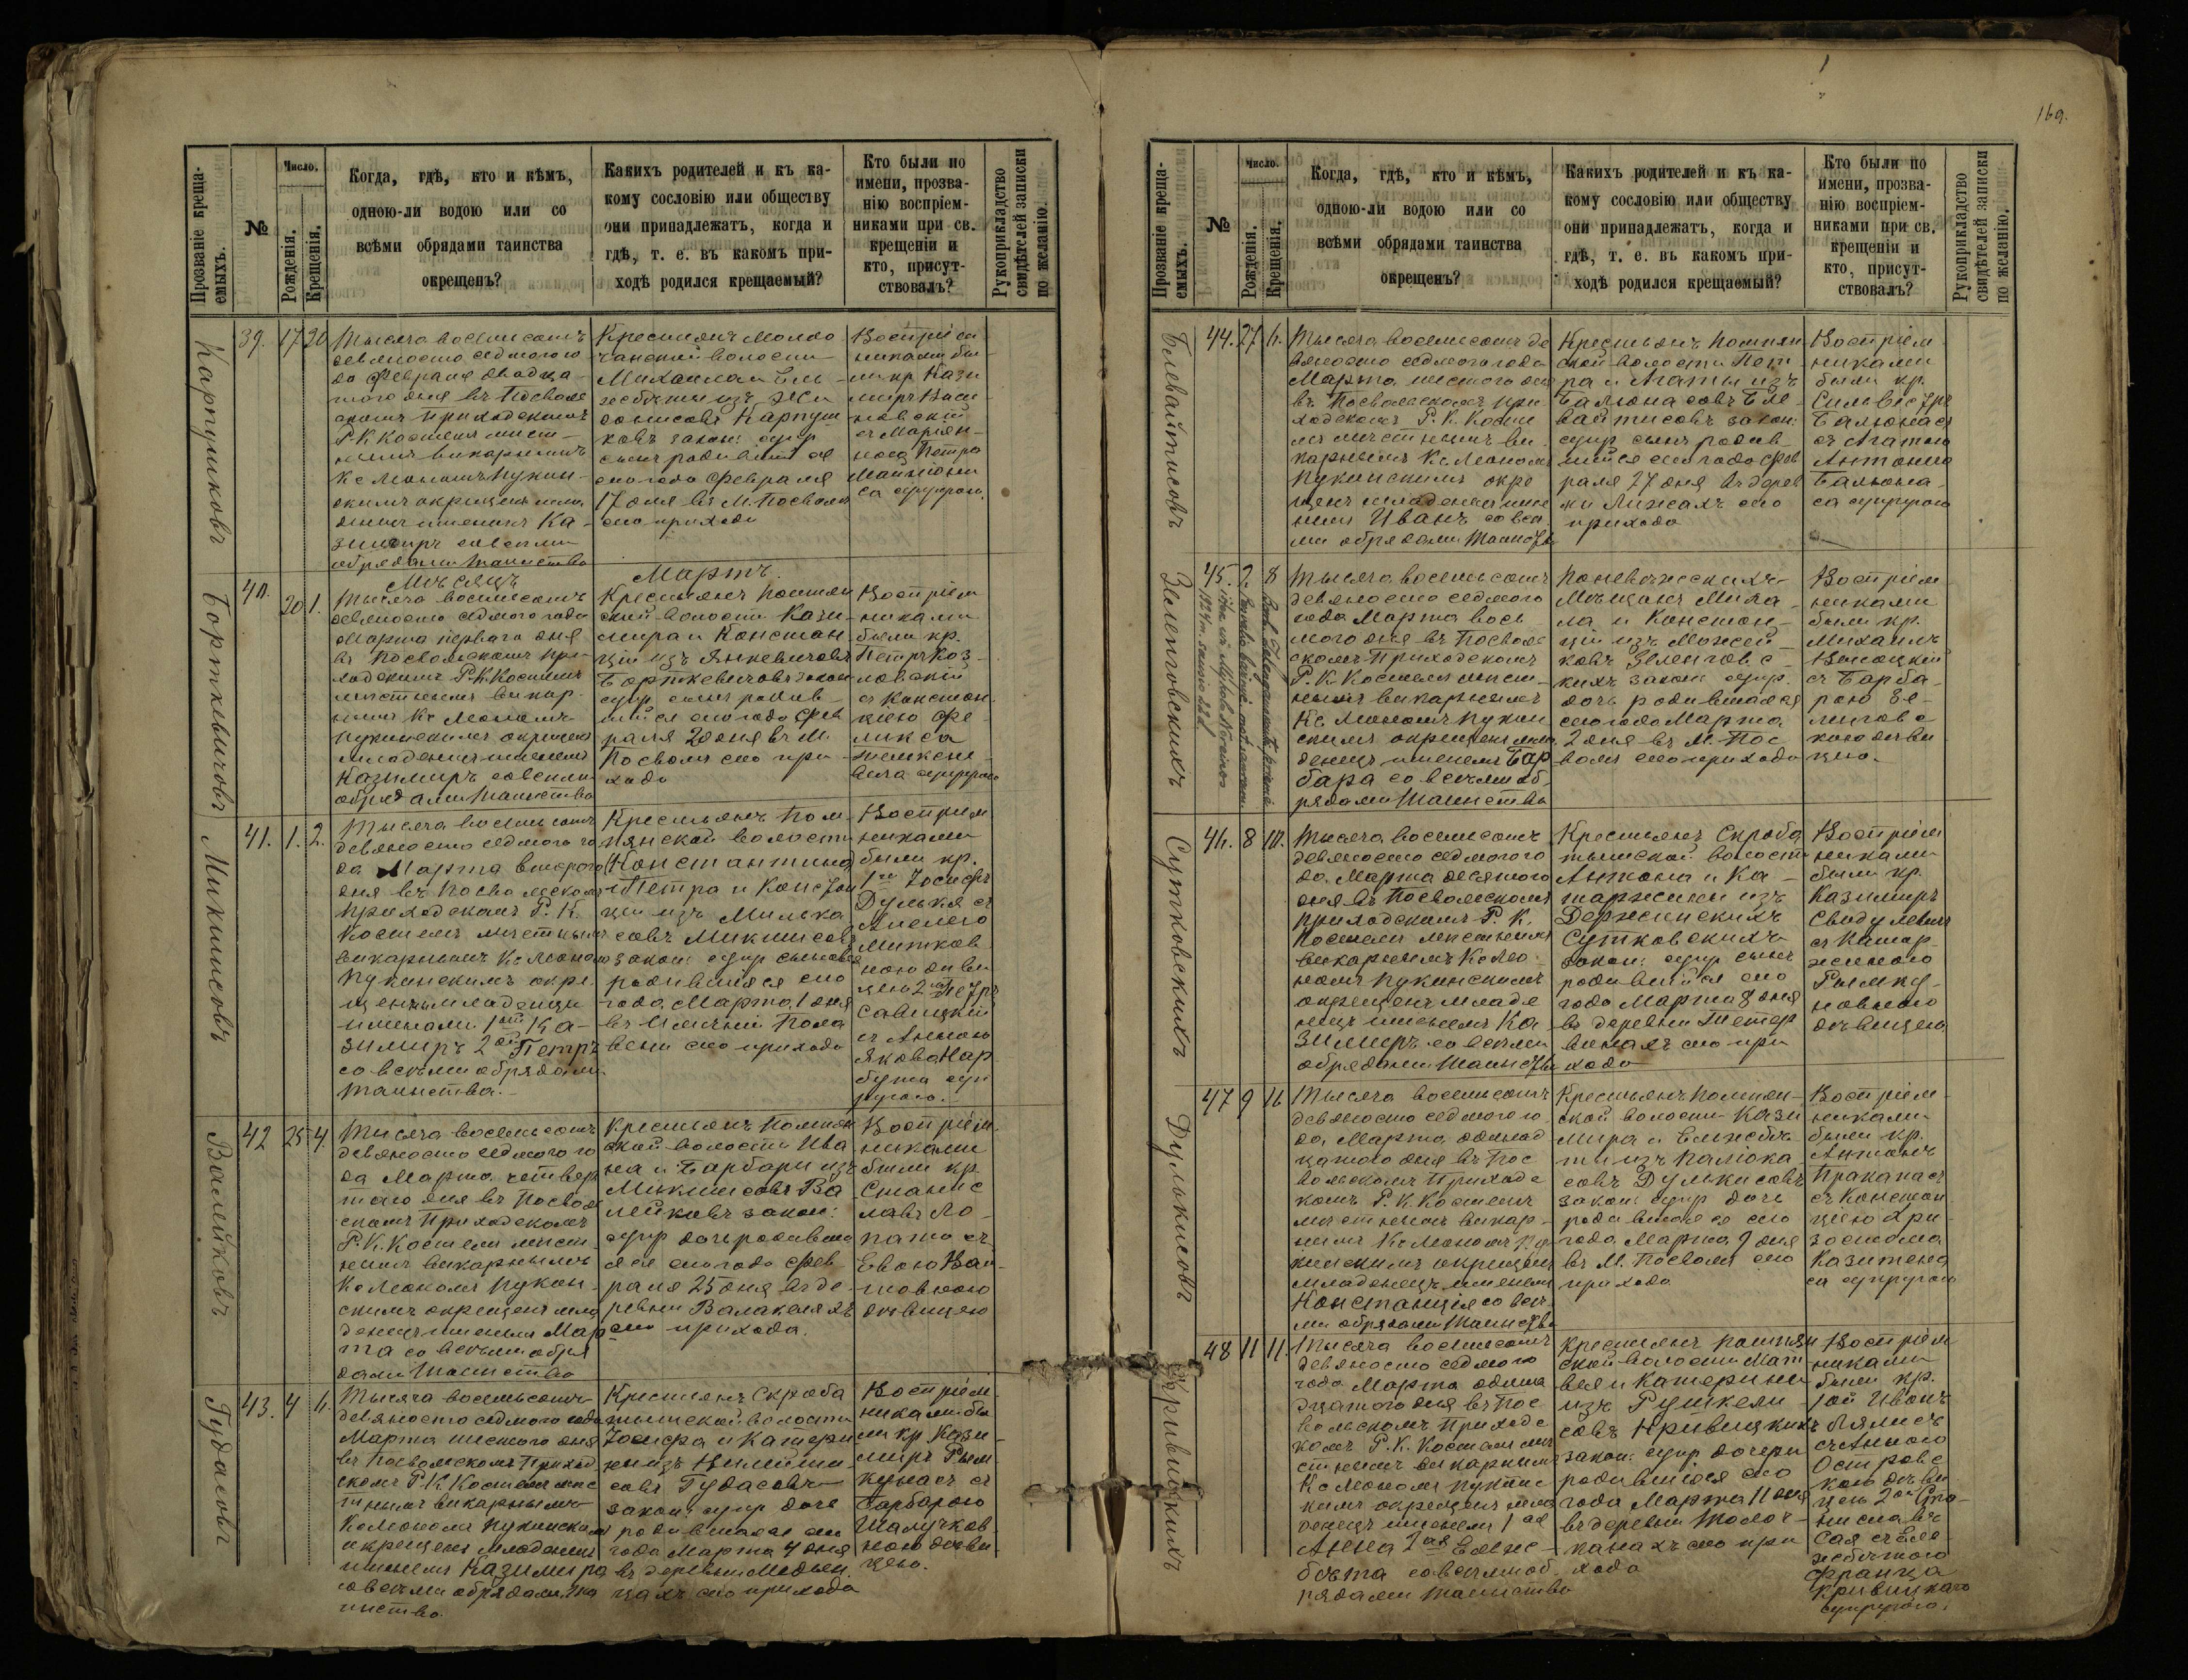 169.
Прозваніе креща-
емыхъ.
№
Число.
Рожденія.
Крещенія.
Когда, гдѣ, кто и кѣмъ,
одною-ли водою или со
всѣми обрядами таинства
окрещенъ?
Какихъ родителей и къ ка-
кому сословію или обществу
они принадлежатъ, когда и
гдѣ, т. е. въ какомъ при-
ходѣ родился крещаемый?
Кто были по
имени, прозва-
нію воспріем-
никами при св.
крещеніи и
кто, присут-
ствовалъ?
Рукоприкладство
свидѣтелей записки
по желанію.
Карпушковъ
39.
17
20
Тысяча восемьсотъ
девяносто седьмого го
да Февраля двадца-
того дня въ Посволь
скомъ приходскомъ
Р. К. Костелѣ мѣст-
нымъ викарнымъ
Кс Леономъ Пукин-
скимъ окрещенъ мла
денецъ именемъ Ка-
зимиръ со всѣми
обрядами таинства
Крестьянъ
чанской волости
Михаила и Ели-
забеты изъ
Карпуш
ковъ закон: супр
сынъ родившійся
сего года Февраля
17 дня въ М. Посволѣ
сего прихода
Воспріем
никами бы-
ли кр. Кази
миръ
съ Маріан-
ною Петра
са супругою.
Мѣсяцъ
Мартъ.
Борткевичовъ
40.
20
1.
Тысяча восемьсотъ
девяносто седьмого года
Марта перваго дня
въ Посвольскомъ при-
ходскомъ Р. К. Костелѣ
мѣстнымъ викар-
нымъ Кс Леономъ
Пукинскимъ окрещенъ
младенецъ именемъ
Казимиръ со всѣми
обрядами таинства
Крестьянъ Помпян
ской волости Кази-
мира и Констан-
ціи изъ Янкевичовъ
Борткевичовъ закон
супр сынъ родив-
шійся сего года Фев
раля 20 дня въ М.
Посволѣ сего при-
хода
Воспріем
никами
были кр.
Петръ Коз-
ловскій
съ Констан-
ціею Фе-
ликса
супругою
Микшисовъ
41.
1.
2.
Тысяча восемьсотъ
девяносто седьмого го
да Марта второго
дня въ Посвольскомъ
приходскомъ Р. К.
Костелѣ мѣстнымъ
викарнымъ Кс Леономъ
Пукинскимъ окре-
щены младенцы
именами 1ый Ка-
зимиръ 2ой Петръ
со всѣми обрядами
таинства.
Крестьянъ Пом-
пянской волости
(Константина)
Петра и Констан
ціи изъ Милька
совъ Микшисовъ
закон: супр сыновья
родившіеся сего
года Марта 1 дня
въ Имѣніи Пола
вени сего прихода
Воспріем
никами
были кр.
1го Іосифъ
Дулька съ
Анелею
Митков-
ною дѣви
цею 2го Петръ
Савицкій
съ Анною
Якова Нар
бута суп
ругою.
Валейковъ
42
25
4.
Тысяча восемьсотъ
девяносто седьмого го
да Марта четвер
таго дня въ Посволь
скомъ Приходскомъ
Р. К. Костелѣ мѣст-
нымъ викарнымъ
Кс Леономъ Пукин-
скимъ окрещенъ мла
денецъ именемъ Мар
та со всѣми обря
дами таинства
Крестьянъ Помпян
ской волости Ива
на и Барбары изъ
Микшисовъ Ва
лейковъ закон:
супр дочь родивша
яся сего года Фев
раля 25 дня въ де-
ревни Валакеляхъ
сего прихода.
Воспріем
никами
были кр.
Станис
лавъ Ло-
пато съ
Евою Вай-
товною
дѣвицею
Гудасовъ
43.
4
6.
Тысяча восемьсотъ
девяносто седьмого года
Марта шестого дня
въ Посвольскомъ Приход
скомъ Р. К. Костелѣ мѣс
тнымъ викарнымъ
Кс Леономъ Пукинскимъ
окрещенъ младенецъ
именемъ Казимира
со всѣми обрядами та
инства.
Крестьянъ Скроба
тышской волости
Іосифа и Катери
ны изъ
совъ Гудасовъ
закон: супр дочь
родившаяся сего
года Марта 4 дня
въ деревни
цахъ сего прихода
Воспріем
никами бы
ли кр. Кази-
миръ Рым
кунасъ съ
Барбарою
Шалучков-
ною дѣви
цею.
Прозваніе креща-
емыхъ.
№
Число.
Рожденія.
Крещенія.
Когда, гдѣ, кто и кѣмъ,
одною-ли водою или со
всѣми обрядами таинства
окрещенъ?
Какихъ родителей и къ ка-
кому сословію или обществу
они принадлежатъ, когда и
гдѣ, т. е. въ какомъ при-
ходѣ родился крещаемый?
Кто были по
имени, прозва-
нію воспріем-
никами при св.
крещеніи и
кто, присут-
ствовалъ?
Рукоприкладство
свидѣтелей записки
по желанію.
Белевайтисовъ
44.
27
6.
Тысяча восемьсотъ де
вяносто седьмого года
Марта шестого дня
въ Посвольскомъ при
ходскомъ Р. К. Косте
лѣ мѣстнымъ ви-
карнымъ Кс Леономъ
Пукинскимъ окре
щенъ младенецъ име
немъ Иванъ со всѣ
ми обрядами таинства
Крестьянъ Помпян
ской волости Пет
ра и Агаты изъ
Бальюнасовъ Беле-
вайтисовъ закон:
супр сынъ родив-
шійся сего года Фев
раля 27 дня въ дерев
ни Лижахъ сего
прихода
Воспріем
никами
были кр.
Сильвестръ
Бальюнасъ
съ Агатою
Антонія
Бальюна-
са супругою
Зеленговскихъ
45.
2.
8
Тысяча восемьсотъ
девяносто седьмого
года Марта вось
мого дня въ Посволь
скомъ Приходскомъ
Р. К. Костелѣ мѣст-
нымъ викарнымъ
Кс Леономъ Пукин
скимъ окрещенъ мла
денецъ именемъ Бар
бара со всѣми об-
рядами таинства
Поневѣжскихъ
Мѣщанъ Миха-
ла и Констан-
ціи изъ Можей
ковъ Зеленговс-
кихъ закон супр.
дочь родившаяся
сего года Марта
2 дня въ М. Пос
волѣ сего прихода
Воспріем
никами
были кр.
Михаилъ
Высоцкій
съ Барба-
рою Зе-
лигове
кою дѣви
цею.
Сутковскихъ
46.
8
10.
Тысяча восемьсотъ
девяносто седьмого го
да Марта десятого
дня въ Посвольскомъ
приходскомъ Р. К.
Костелѣ мѣстнымъ
викарнымъ Кс Лео-
номъ Пукинскимъ
окрещенъ младе
нецъ именемъ Ка
зимиръ со всѣми
обрядами таинства
Крестьянъ Скроба
тышской волости
Антона и Ка-
таржины изъ
Держинскихъ
Сутковскихъ
закон: супр сынъ
родившійся сего
года Марта 8 дня
въ деревни Тетер
винахъ сего при
хода
Воспріем
никами
были кр.
Казимиръ
съ Катар-
жиною
Рымку-
новною
дѣвицею
Дулькисовъ
47
9
16
Тысяча восемьсотъ
девяносто седьмого го
да Марта одинад
цатого дня въ Пос
вольскомъ Приходс
комъ Р. К. Костелѣ
мѣстнымъ викар-
нымъ Кс Леономъ Пу-
кинскимъ окрещенъ
младенецъ именемъ
Констанція со всѣ-
ми обрядами таинства
Крестьянъ Помпян-
ской волости Кази
мира и Елизабе-
ты изъ Палюка
совъ Дулькисовъ
закон: супр дочь
родившаяся сего
года Марта 9 дня
въ М. Посволѣ сего
прихода
Воспріем
никами
были кр.
Антонъ
Пракапасъ
съ Констан
ціею Хри-
зостома
са супругою
Кривицкихъ
48
11
11.
Тысяча восемьсотъ
девяносто седьмого
года Марта одина
дцатого дня въ Пос
вольскомъ Приходс
комъ Р. К. Костелѣ мѣ
стнымъ викарнымъ
Кс Леономъ Пукинс
кимъ окрещенъ мла
денецъ именемъ 1ая
Анна 2ая Елиза-
бета со всѣми об-
рядами таинства
Крестьянъ Помпян
ской волости Мат
вея и Катерины
изъ Рушкели-
совъ Кривицкихъ
закон: супр дочери
родившіяся сего
года Марта 11 дня
въ деревни Толоч-
канахъ сего при
хода
Воспріем
никами
были кр.
1ой Иванъ
съ Анною
Островс
кою дѣви
цею 2ой Ста-
ниславъ
съ Ели-
забетою
Франца
Кривицкаго
супругою.